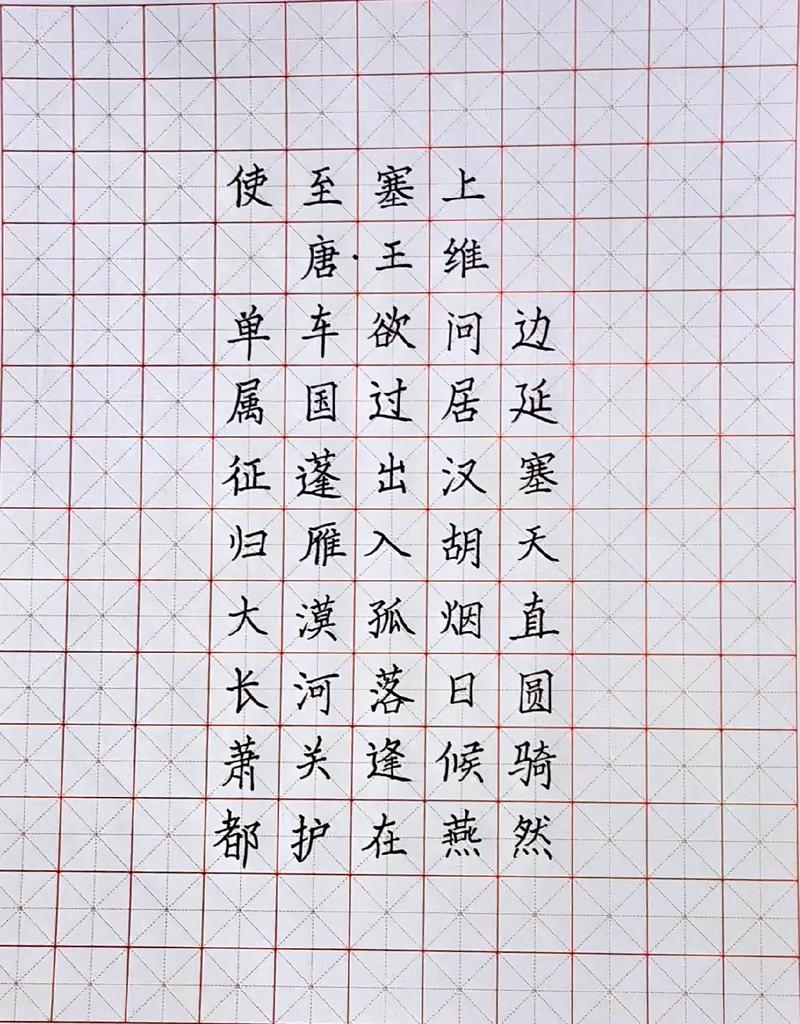 使至塞上
唐·王维
单车欲问边
属国过居延
征蓬出汉塞
归雁入胡天
大漠孤烟直
长河落日圆
萧关逢候骑
都护在燕然